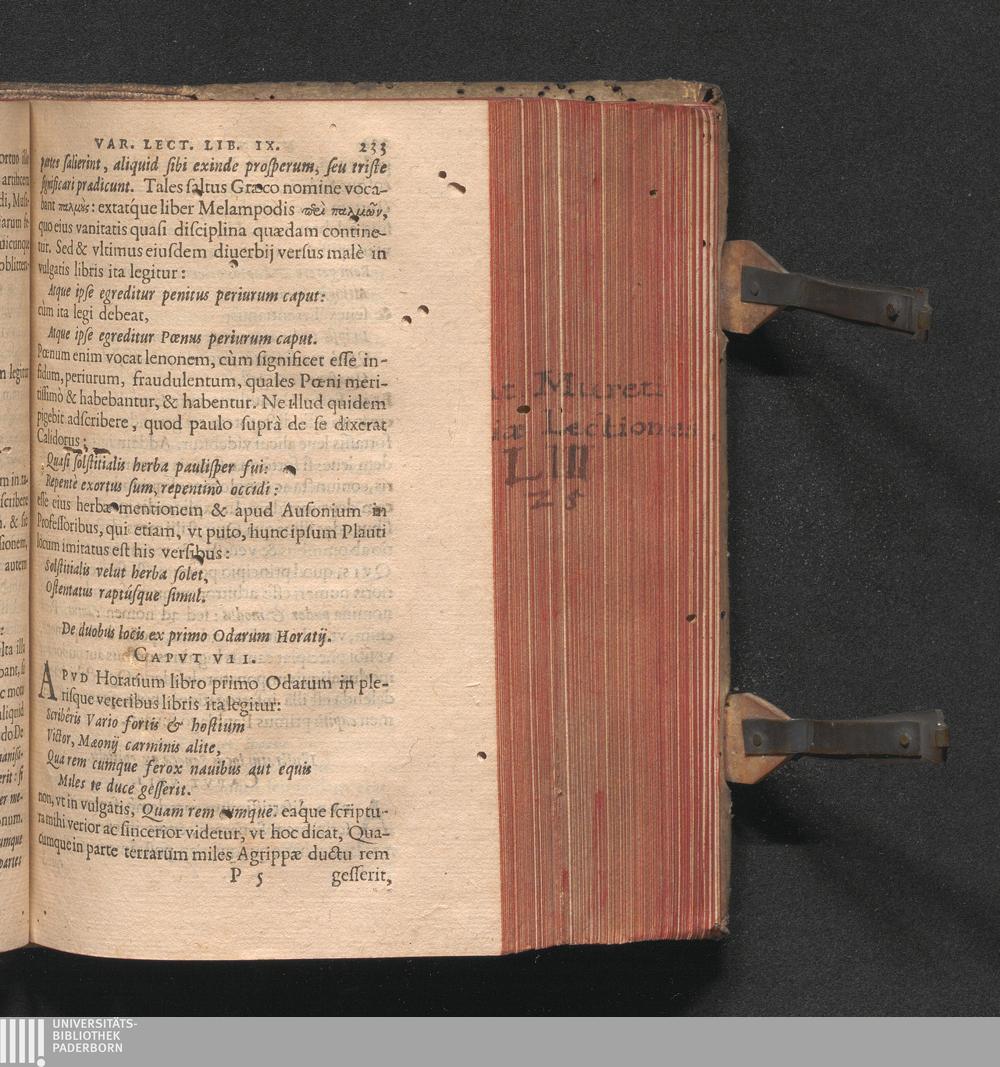 VAR. LECT. LIB. IX. 233
partes salierint, aliquid sibi exinde prosperum, seu triste
significari prædicunt. Tales saltus Græco nomine voca-
bant παλμοὺς: extatq́ue liber Melampodis περὶ παλμῶν,
quo eius vanitatis quasi disciplina quædam contine-
tur. Sed & vltimus eiusdem diuerbij versus malè in
vulgatis libris ita legitur:
Atque ipse egreditur penitus periurum caput:
cùm ita legi debeat,
Atque ipse egreditur Pœnus periurum caput.
Pœnum enim vocat lenonem, cùm significet esse in-
fidum, periurum, fraudulentum, quales Pœni meri-
tissimò & habebantur, & habentur. Ne illud quidem
pigebit adscribere, quod paulo suprà de se dixerat
Calidorus;
Quasi solstitialis herba paulisper fui:
Repentè exortus sum, repentinò occidi:
esse eius herbæ mentionem & apud Ausonium in
Professoribus, qui etiam, vt puto, hunc ipsum Plauti
locum imitatus est his versibus:
Solstitialis velut herba solet,
Ostentatus raptúsque simul.
De duobus locis ex primo Odarum Horatij.
CAPVT VII.
APVD Horatium libro primo Odarum in ple-
risque veteribus libris ita legitur:
Scribêris Vario fortis & hostium
Victor, Mæonij carminis alite,
Qua rem cumque ferox nauibus aut equis
Miles te duce gesserit.
non, vt in vulgatis, Quam rem cumque. eáque scriptu-
ra mihi verior ac sincerior videtur, vt hoc dicat, Qua-
cumque in parte terrarum miles Agrippæ ductu rem
P 5 gesserit,
Mureti
Lectiones
LIII
25
UNIVERSITÄTS-
BIBLIOTHEK
PADERBORN